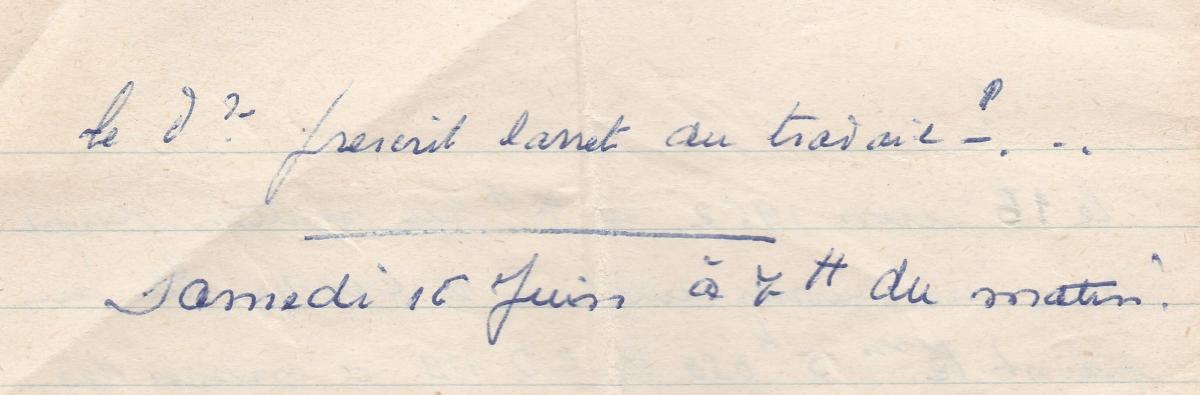 le dr prescrit larret du travail - ! ..
Samedi 16 Juin à 7 H du matin.